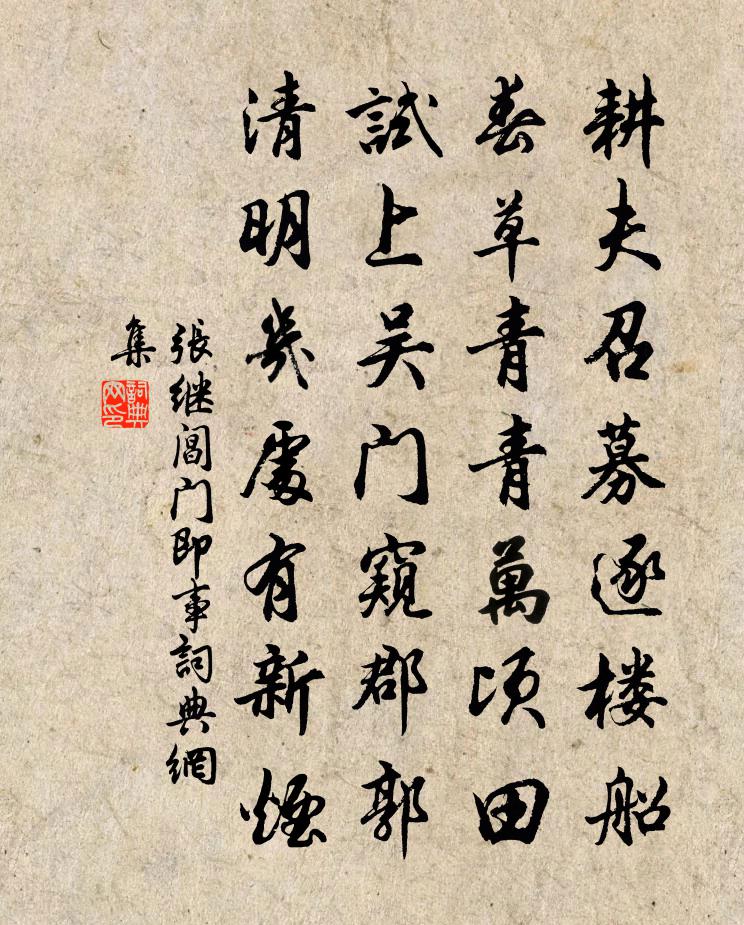 耕夫召募逐楼船
春草青青萬顷田
試上吴门窺郡郭
清明幾處有新煙
張继閶门即事詞典網
集
詞典
网印